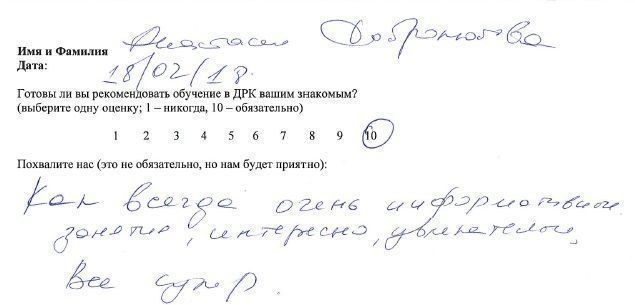 Имя и Фамилия Анастасия Добролюбова
Дата: 18/02/18.
Готовы ли вы рекомендовать обучение в ДРК вашим знакомым?
(выберите одну оценку; 1 – никогда, 10 – обязательно)
1 2 3 4 5 6 7 8 9 10
Похвалите нас (это не обязательно, но нам будет приятно):
Как всегда очень информативное
занятие, интересно, увлекательно,
Все супер.